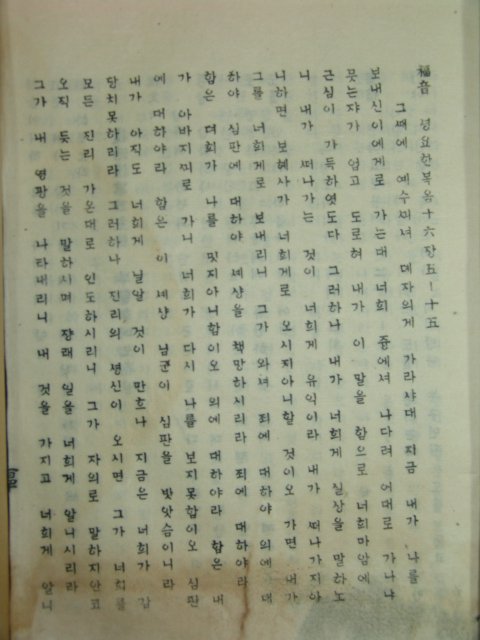 福音 성요한복음 十六장 五ー十五
그때에 예수씨셔 뎨자의게 가라샤대 지금 내가 나를
보내신 이에게로 가는대 너희 중에셔 나다려 어대로 가나냐
뭇는쟈가 업고 도로혀 내가 이 말을 함으로 너희 마암에
근심이 가득하엿도다 그러하나 내가 너희게 실상을 말하노
니 내가 떠나가는 것이 너희게 유익이라 내가 떠나가지아
니하면 보혜사가 너희게로 오시지아니할 것이오 가면 내가
그를 너희게로 보내리니 그가 와셔 죄에 대하야 의에 대
하야 심판에 대하야 세샹을 책망하시리라 죄에 대하야라
함은 뎌희가 나를 밋지아니함이오 의에 대하야라 함은 내
가 아바지끠로 가니 너희가 다시 나를 보지못함이오 심판
에 대하야라 함은 이 세샹 님군이 심판을 밧앗슴이니라
내가 아직도 너희게 닐알 것이 만흐나 지금은 너희가 감
당치못하리라 그러하나 진리의 셩신이 오시면 그가 너희를
모든 진리 가온대로 인도하시리니 그가 자의로 말하지안코
오직 듯는 것을 말하시며 쟝래 일을 너희게 알니시리라
그가 내 영광을 나타내리니 내 것을 가지고 너희게 알니